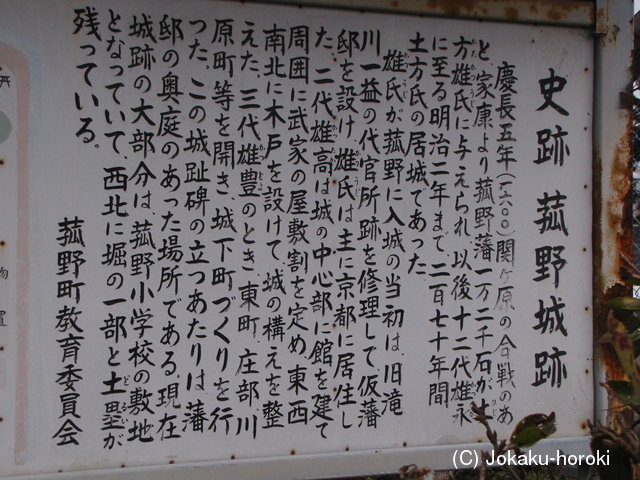 史跡 菰野城跡
慶長五年(一六〇〇)関ヶ原の合戦のあ
と、家康より菰野藩一万二千石が土
方雄氏に与えられ、以後十二代雄永
に至る明治二年まで二百七十年間
土方氏の居城であった。
雄氏が菰野に入城の当初は、旧滝
川一益の代官所跡を修理して仮藩
邸を設け、雄氏は主に京都に居住し
た。二代雄高は城の中心部に館を建て
周囲に武家の屋敷割を定め、東西
南北に木戸を設けて、城の構えを整
えた。三代雄豊のとき、東町、庄部、川
原町等を開き、城下町づくりを行
った。この城趾碑の立つあたりは藩
邸の奥庭のあった場所である。現在
城跡の大部分は、菰野小学校の敷地
となっていて、西北に堀の一部と土塁が
残っている。
菰野町教育委員会
(C) Jokaku-horoki